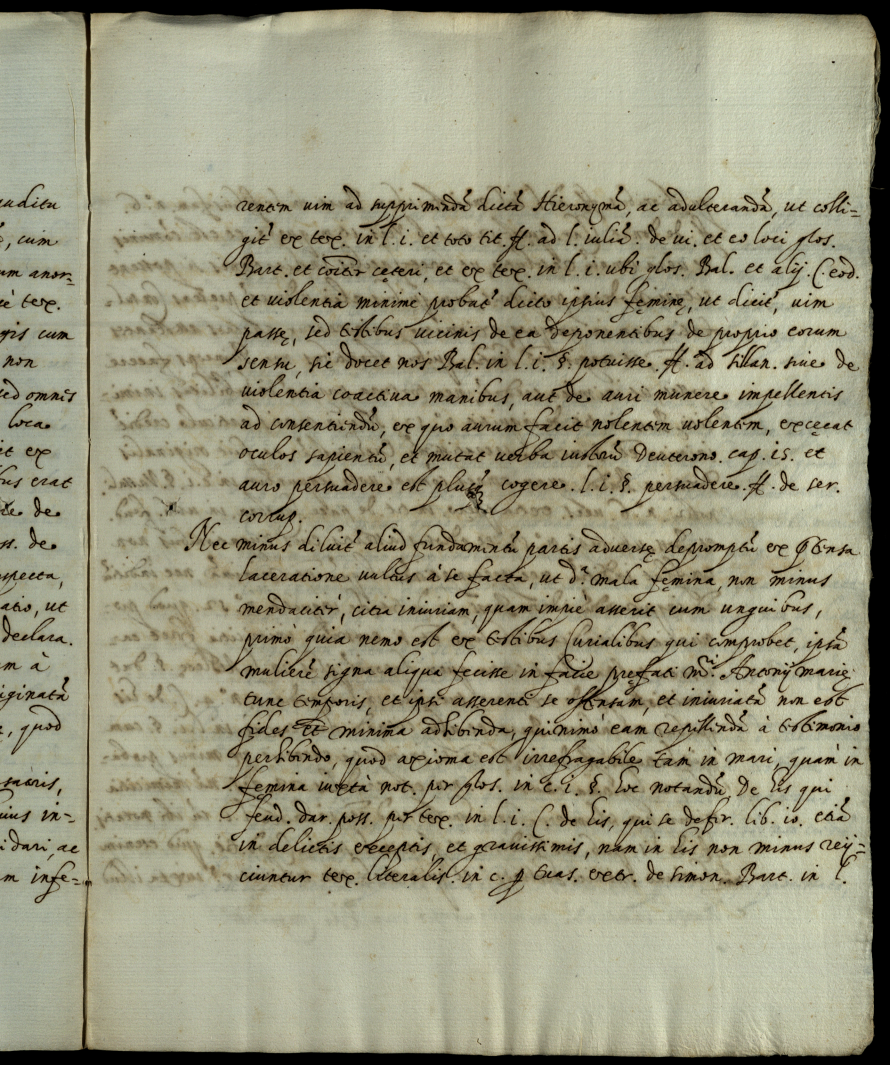 uditu
, cum
um anor=
tex.
gis cum
non
sed omnis
loca
it ex
bus erat
de
ss. de
specta,
atio, ut
declara.
m à
iginatã
, quod
sacris,
uius in=
i dari, ac
m infe=
rentem uim ad supprimendã dictã Hieronymã, ac adulterandã, ut colli=
git̃ ex tex. in l. i. et toto tit. ff. ad l. iuliã. de ui. et eo loci glos.
Bart. et coĩter cęteri, et ex tex. in l. i. ubi glos. Bal. et alij C. eod.
et uiolentia minime probat̃ dicto ipsius fęminę, ut dicit̃, uim
passę, sed testibus uicinis de ea deponentibus de proprio eorum
sensu, sic docet nos Bal. in l. i. §. potuisse. ff. ad sillan. siue de
uiolentia coactiua manibus, aut de auri munere impellentis
ad consentiendũ, ex quo aurum facit nolentem uolentem, excęcat
oculos sapientũ, et mutat uerba iustorũ Deuterono. cap. 15. et
auro persuadere est plusq̃ cogere. l. i. §. persuadere. ff. de ser.
corrup.
Nec minus diluit̃ aliud fundamentũ partis aduersę depromptũ ex p̃tensa
laceratione uultus à se facta, ut d.ͣ mala fęmina, non minus
mendacitèr, citra iniuriam, quam impiè asserit cum unguibus,
primò quia nemo est ex testibus Curialibus qui comprobet, ipsã
mulierẽ signa aliqua fecisse in facie pręfati m.ͥ Antonij marię
tunc temporis, et ipsi asserenti se offensam, et iniuriatã non est
fides et minima adhibenda, quinimò eam repellendã à testimonio
perhibendo, quod axioma est irrefragabile tàm in mari, quàm in
femina iuxtà not. per glos. in c. i. §. hoc notandũ. De his qui
feud. dar. poss. per tex. in l. i. C. de his, qui se defer. lib. 10. etiã
in delictis exceptis, et grauissimis, nam in his non minus reij=
ciuntur tex. literalis. in c. p̱ tuas. extr. de simon. Bart. in l.